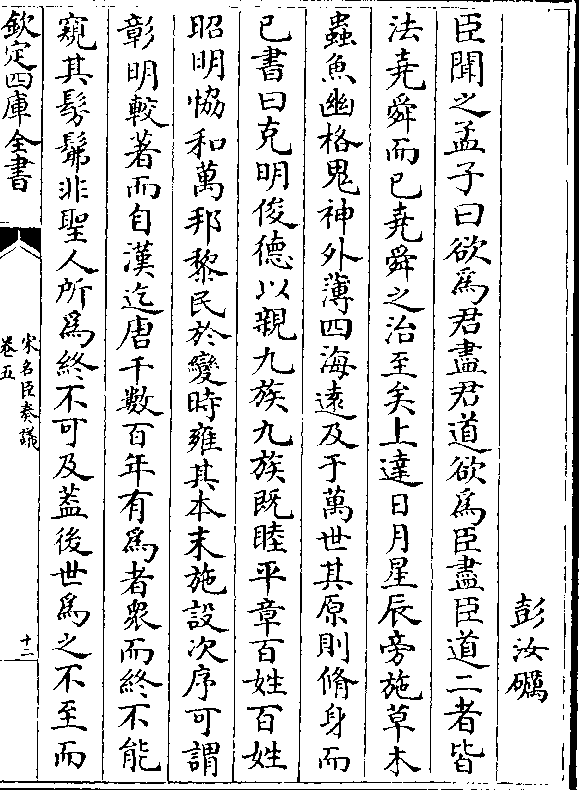 彭汝礪
臣聞之孟子曰欲爲君盡君道欲爲臣盡臣道二者皆
法堯舜而已堯舜之治至矣上達日月星辰旁施草木
蟲魚幽格鬼神外薄四海遠及于萬世其原則脩身而
已書曰克明俊德以親九族九族既睦平章百姓百姓
昭明恊和萬邦黎民於變時雍其本末施設次序可謂
彰明較著而自漢迄唐千數百年有爲者衆而終不能
窺其髣髴非聖人所爲終不可及葢後世爲之不至而
欽定四庫全書
宋名臣奏議
卷五
十二